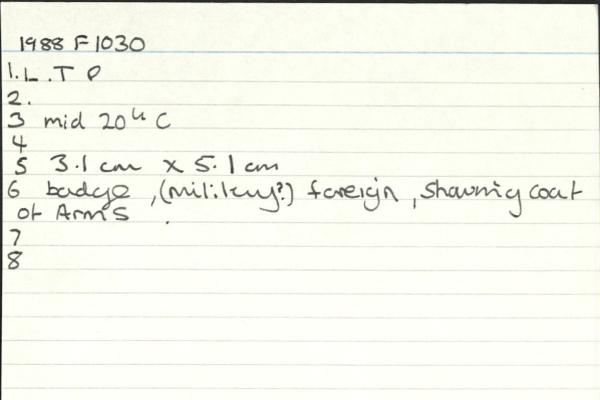 1988 F 1030
1. L.T P
2.
3 mid 20th C
4
5 3.1 cm x 5.1 cm
6 badge, (military?) foreign, showing coat
of Arms.
7
8